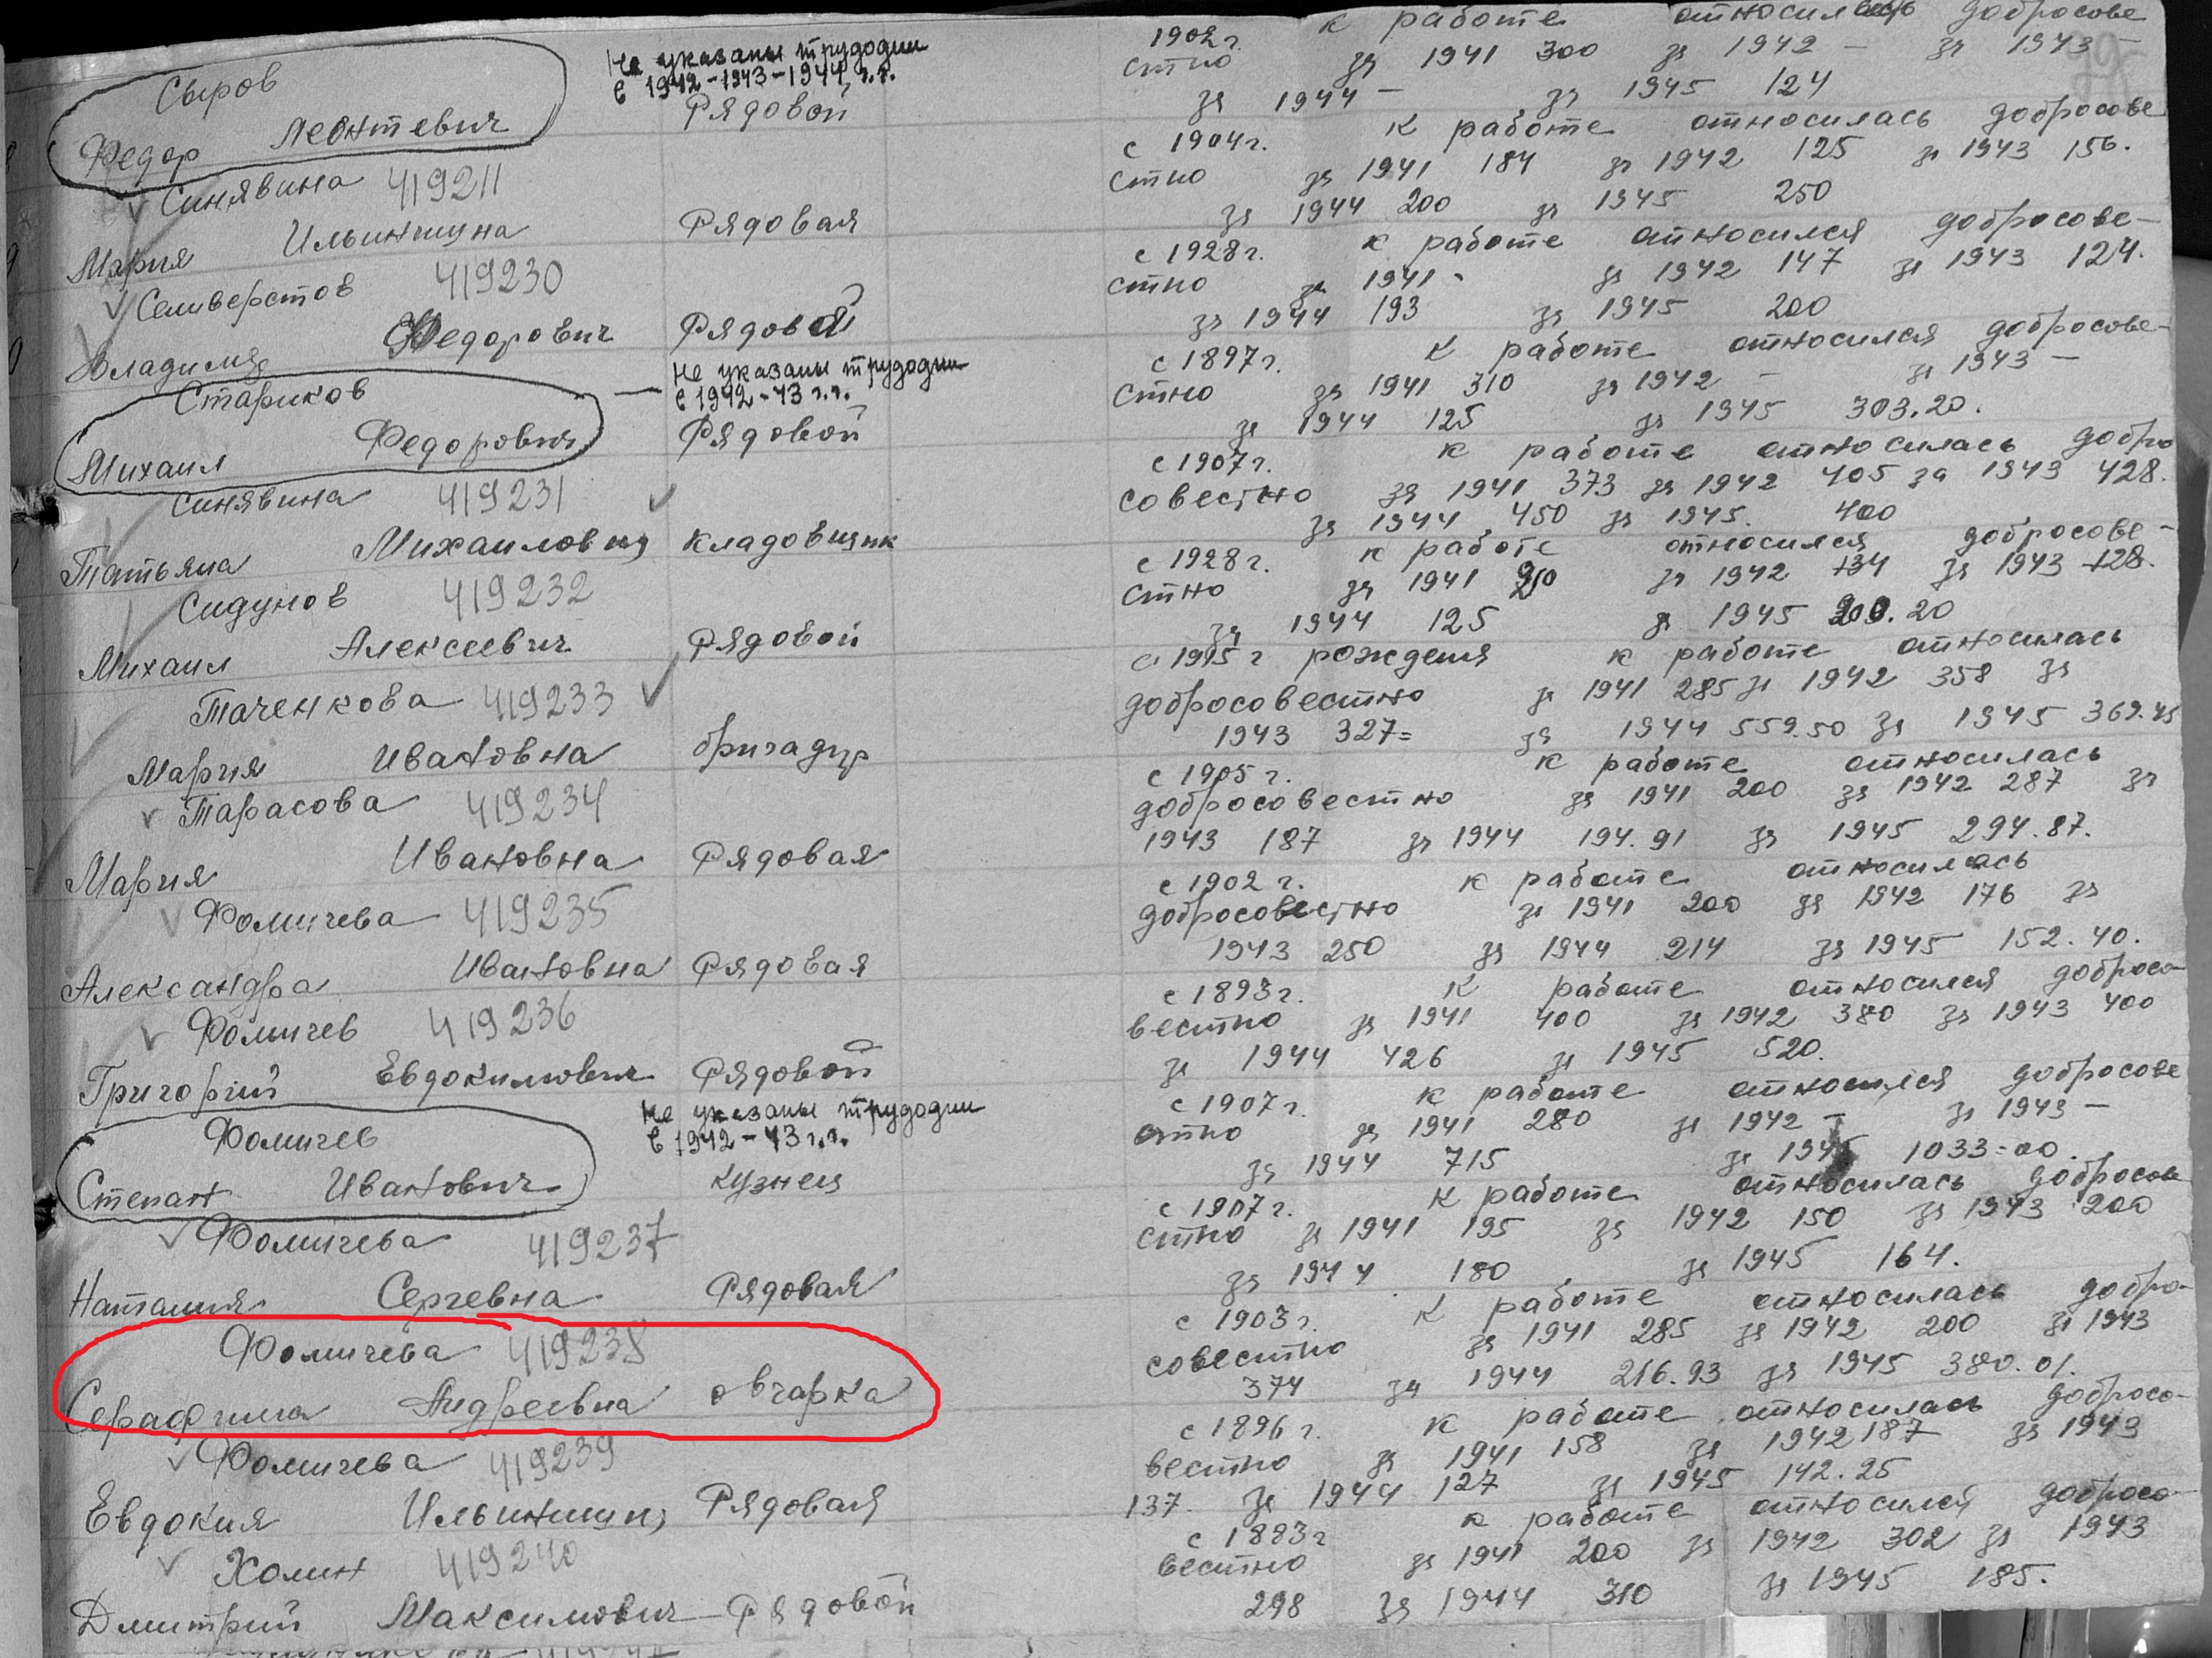 Сыров
Не указаны трудодни
с 1942-1943-1944 г.г.
Федор Леонтевич Рядовой
1902 г. к работе относился добросове
стно за 1941 300 за 1942 — за 1943 —
за 1944 — за 1945 124
Синявина 419211
Мария Ильинична Рядовая
с 1904 г. к работе относилась добросове
стно за 1941 184 за 1942 125 за 1943 156.
за 1944 200 за 1945 250
Селиверстов 419230
Владимир Федорович Рядовой
с 1928 г. к работе относился добросове-
стно за 1941 - за 1942 147 за 1943 124.
за 1944 193 за 1945 200
Стариков
Не указаны трудодни
с 1942-43 г.г.
Михаил Федорович Рядовой
с 1897 г. к работе относился добросове-
стно за 1941 310 за 1942 — за 1943 —
за 1944 125 за 1945 303.20.
Синявина 419231
Татьяна Михаиловна кладовщик
с 1907 г. к работе относилась добро
совестно за 1941 373 за 1942 405 за 1943 428.
за 1944 450 за 1945. 400
Сидунов 419232
Михаил Алексеевич Рядовой
с 1928 г. к работе относился добросове-
стно за 1941 за 1942 134 за 1943 128.
за 1944 125 за 1945
Таченкова 419233
Мария Ивановна бригадир
с 1915 г рождения к работе относилась
добросовестно за 1941 285 за 1942 358 за
1943 327= за 1944 559.50 за 1945 369.45
Тарасова 419234
Мария Ивановна Рядовая
с 1905 г. к работе относилась
добросовестно за 1941 200 за 1942 287 за
1943 187 за 1944 194.91 за 1945 294.87.
Фомичева 419235
Александра Ивановна Рядовая
с 1902 г. к работе относилась
добросовестно за 1941 200 за 1942 176 за
1943 250 за 1944 214 за 1945 152.40.
Фомичев 419236
Григорий Евдокимович Рядовой
с 1893 г. к работе относился добросо-
вестно за 1941 400 за 1942 380 за 1943 400
за 1944 426 за 1945 520.
Фомичев
Не указаны трудодни
с 1942-43 г.г.
Степан Иванович кузнец
с 1907 г. к работе относился добросове
стно за 1941 280 за 1942 — за 1943 —
за 1944 715 за 1945 1033=00.
Фомичева 419237
Наталия Сергевна Рядовая
с 1907 г. к работе относилась добросове
стно за 1941 195 за 1942 150 за 1943 200
за 1944 180 за 1945 164.
Фомичева 419238
Серафима Андреевна овчарка
с 1903 г. к работе относилась добро-
совестно за 1941 285 за 1942 200 за 1943
374 за 1944 216.93 за 1945 380.01.
Фомичева 419239
Евдокия Ильинична Рядовая
с 1896 г. к работе относилась добросо-
вестно за 1941 158 за 1942 187 за 1943
137. за 1944 127 за 1945 142.25
Холин 419240
Дмитрий Максимович Рядовой
с 1883 г к работе относился добросо-
вестно за 1941 200 за 1942 302 за 1943
298 за 1944 310 за 1945 185.